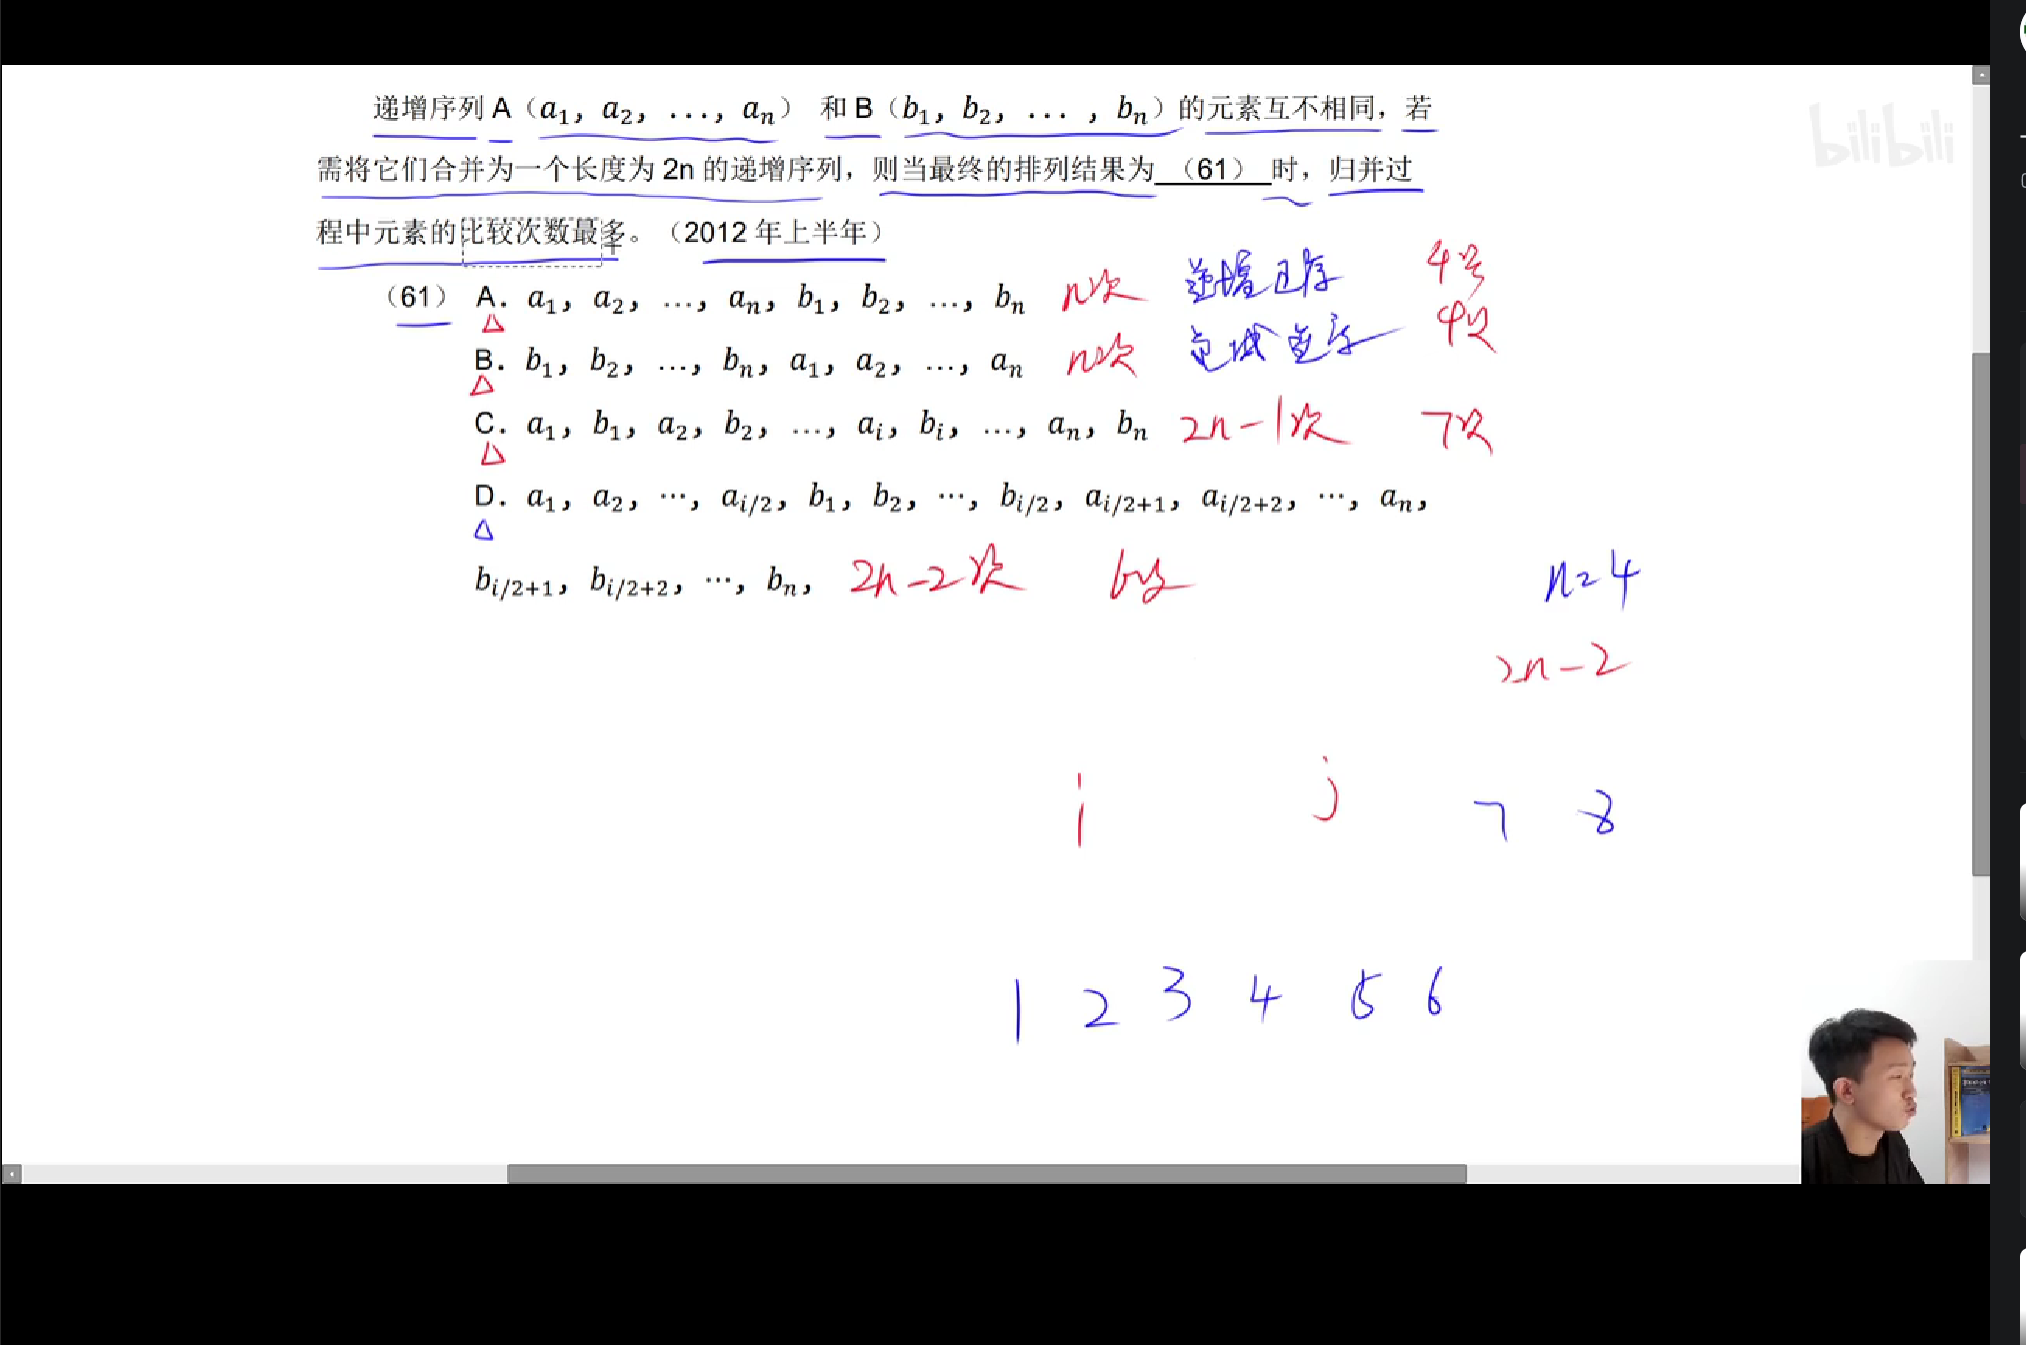 递增序列 A（a₁，a₂，…，aₙ） 和 B（b₁，b₂，…，bₙ）的元素互不相同，若
需将它们合并为一个长度为 2n 的递增序列，则当最终的排列结果为 （61） 时，归并过
程中元素的比较次数最多。（2012 年上半年）
（61） A. a₁，a₂，…，aₙ，b₁，b₂，…，bₙ n次 递增 4次
B. b₁，b₂，…，bₙ，a₁，a₂，…，aₙ n次 4次
C. a₁，b₁，a₂，b₂，…，aᵢ，bᵢ，…，aₙ，bₙ 2n-1次 7次
D. a₁，a₂，…，a_{i/2}，b₁，b₂，…，b_{i/2}，a_{i/2+1}，a_{i/2+2}，…，aₙ，
b_{i/2+1}，b_{i/2+2}，…，bₙ， 2n-2次 6次 n=4
2n-2
i j 7 8
1 2 3 4 5 6
bilibili